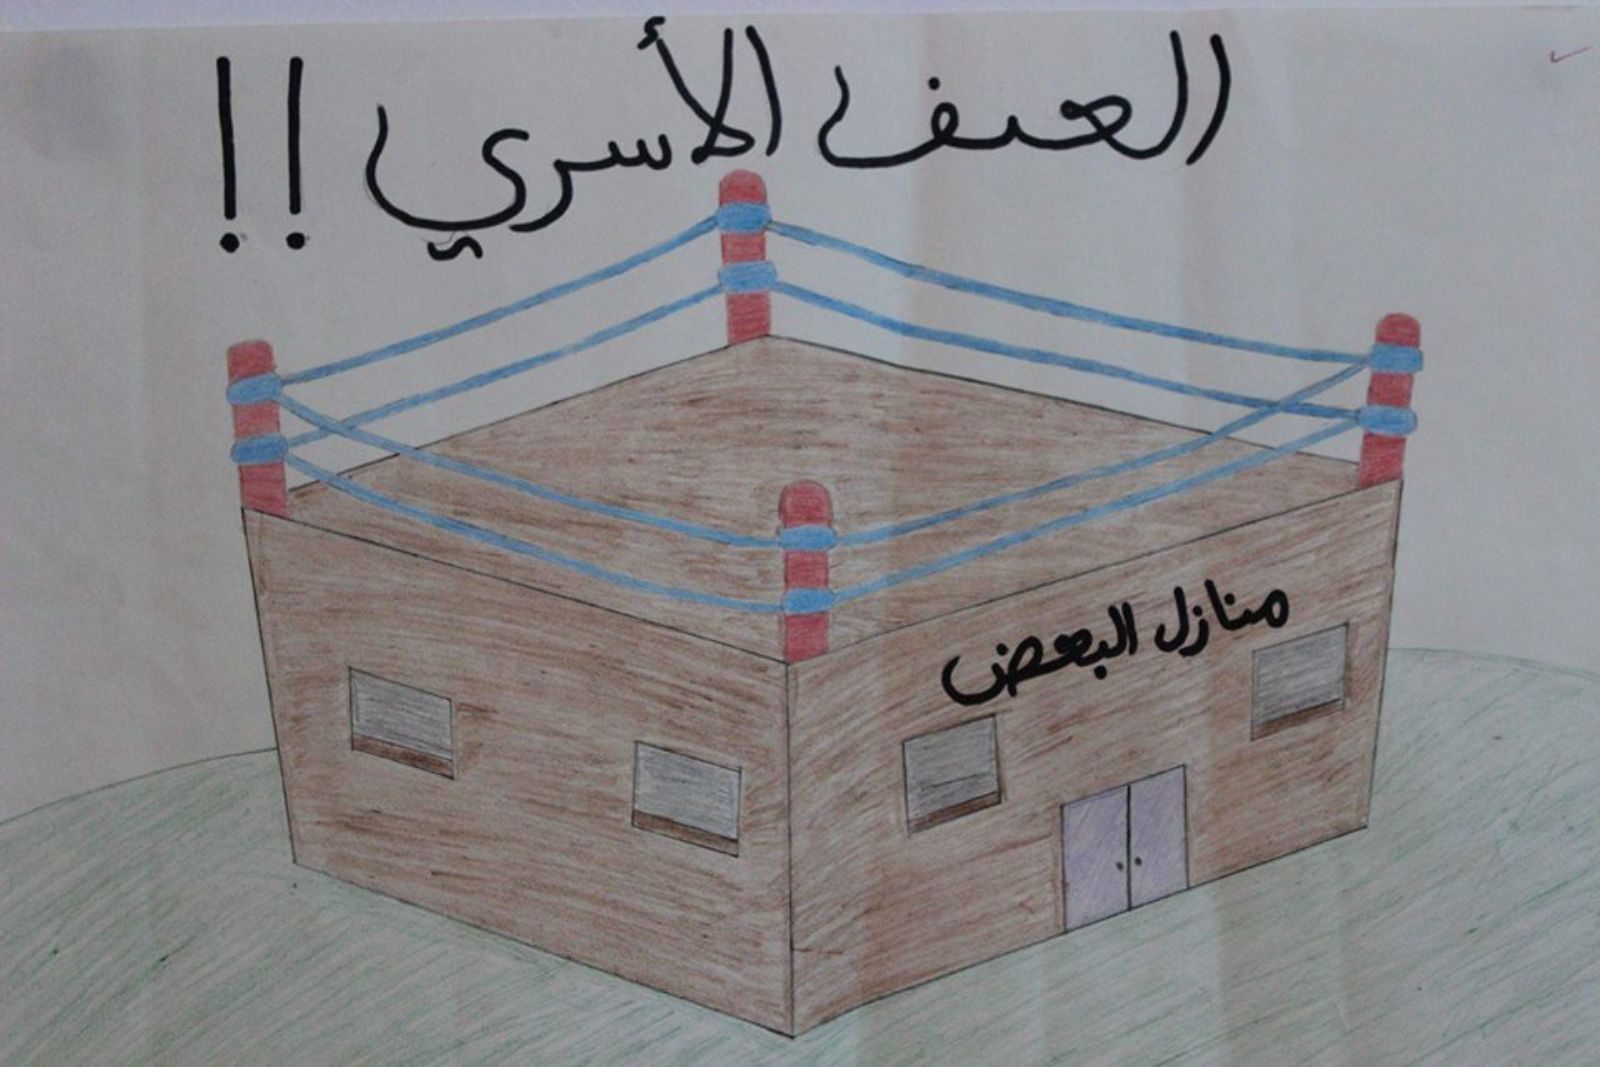 العنف الأسري !!
منازل البعض